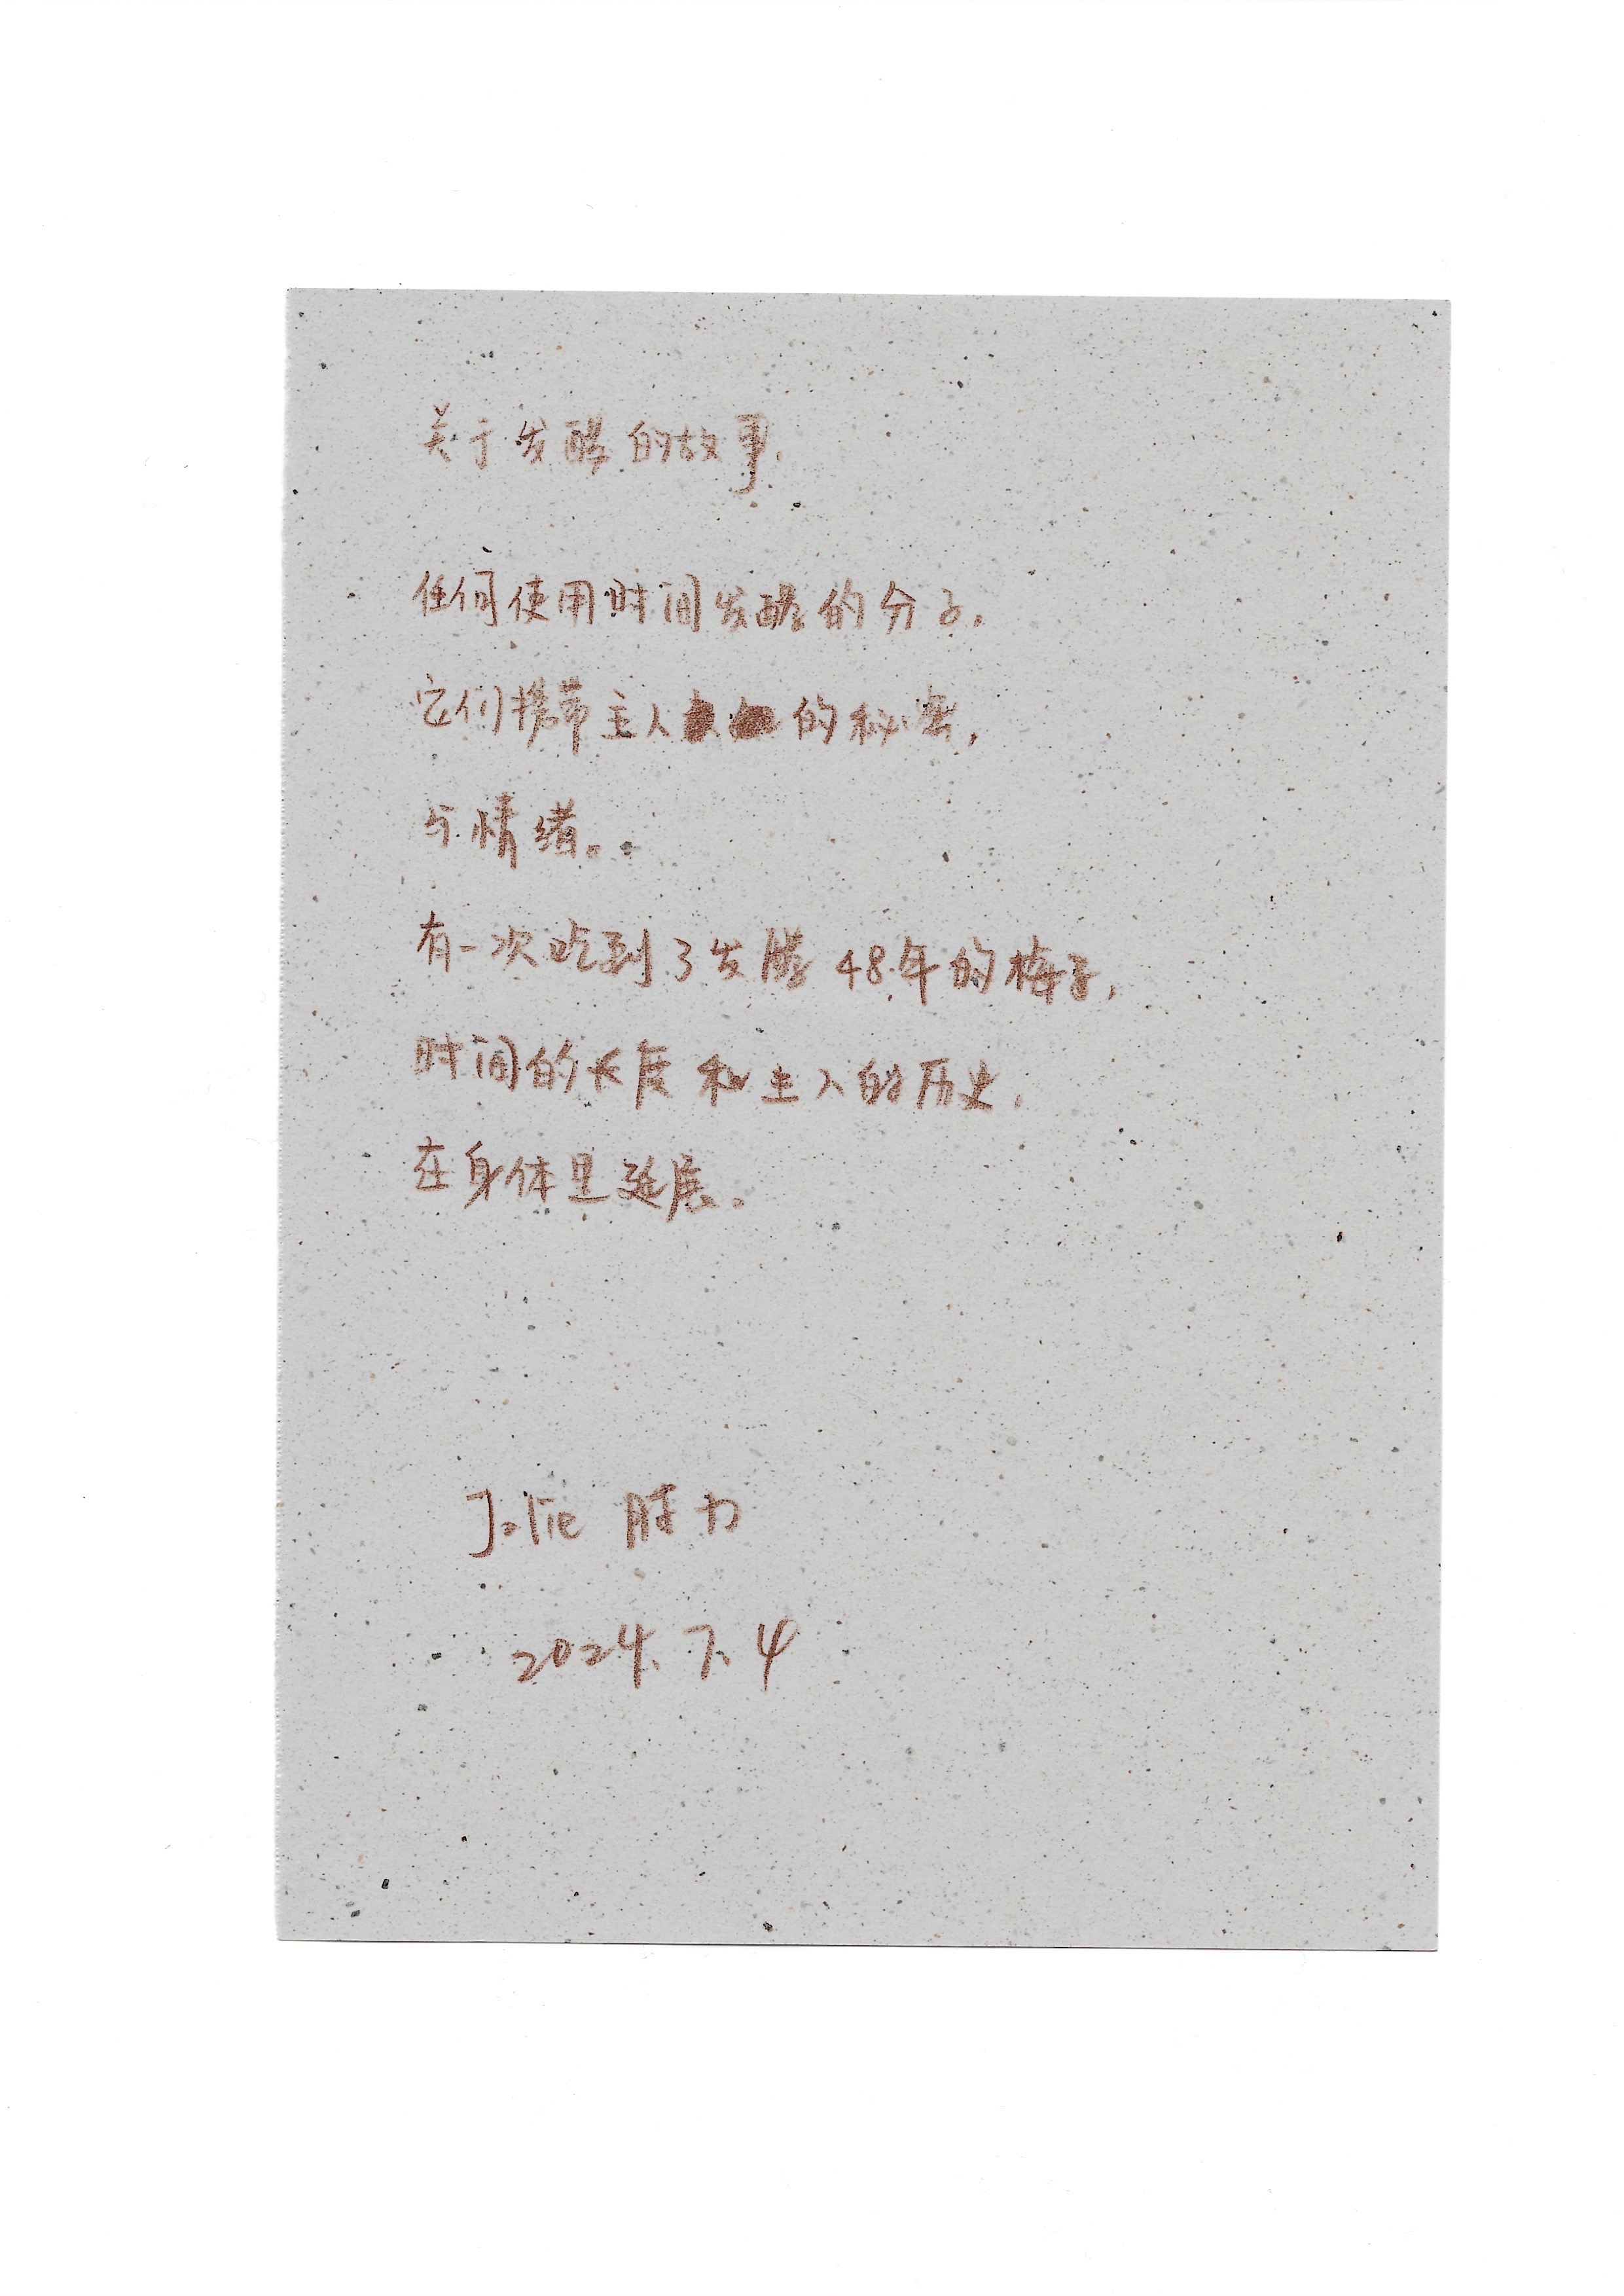 关于发酵的故事.
任何使用时间发酵的分子.
它们携带主人的秘密,
与情绪。
有一次吃到了发酵48年的梅子,
时间的长度和主人的历史.
在身体里延展。
Jolie 胜力
2024.7.4